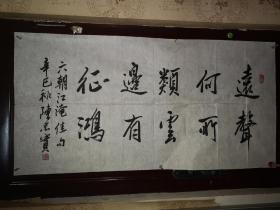 遠聲
何所
類雲
邊有
征鴻
六朝江淹佳句
辛巳秋陳忠實